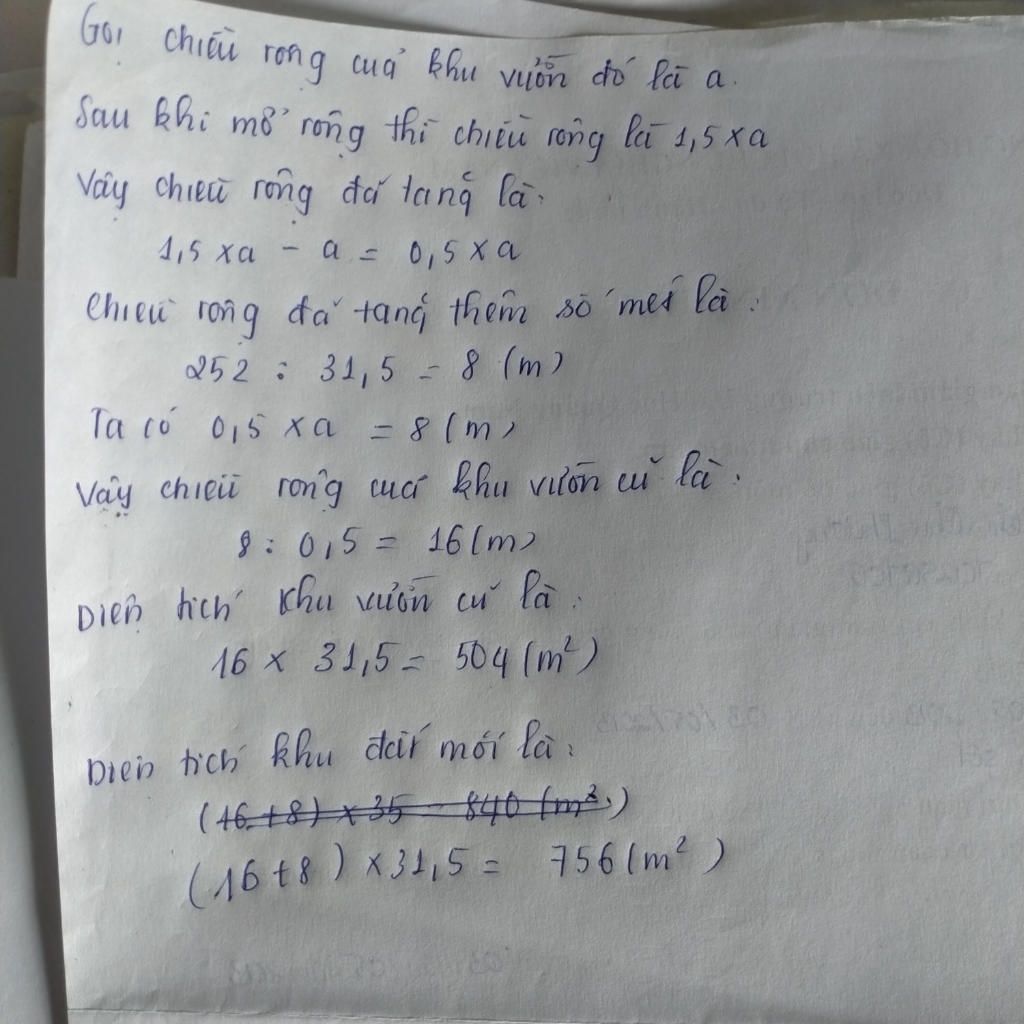 Gọi chiều rộng cuả khu vườn đó là a.
Sau khi mở rộng thì chiều rộng là 1,5 x a
Vậy chiều rộng đã tăng là:
1,5 x a - a = 0,5 x a
Chiều rộng đã tăng thêm số mét là:
252 : 31,5 = 8 (m)
Ta có 0,5 x a = 8 (m)
Vậy chiều rộng cuả khu vườn cũ là:
8 : 0,5 = 16 (m)
Diện tích khu vườn cũ là:
16 x 31,5 = 504 (m²)
Diện tích khu đất mới là:
(16 + 8) x 35 = 840 (m²)
(16 + 8) x 31,5 = 756 (m²)